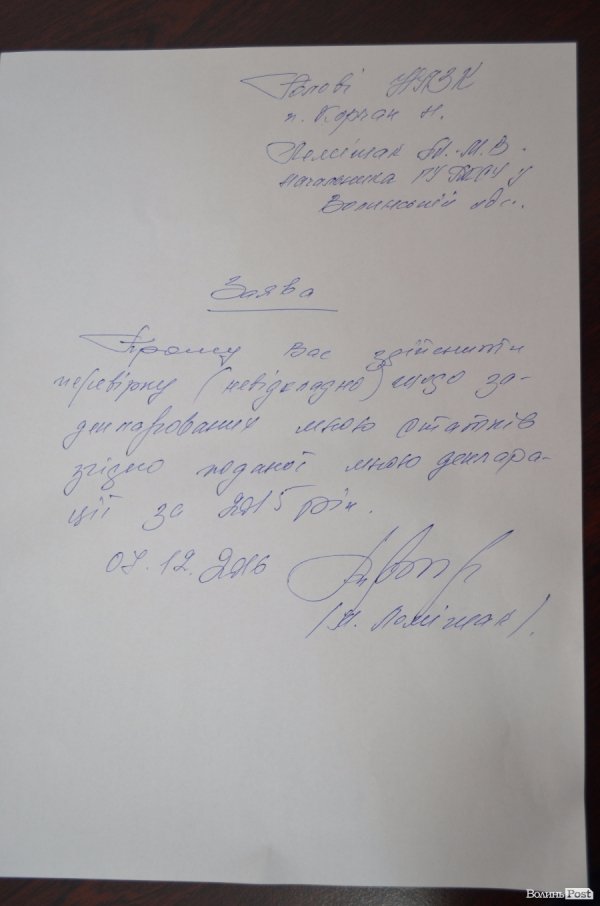 Голові НАЗК
п. Корчак Н.
Полєтшак М.В.
начальника ГУ ДКСУ у
Волинській обл.
Заява
Прошу Вас здійснити
перевірку (невідкладно) щодо за-
декларованих мною статків
згідно поданої мною деклара-
ції за 2015 рік.
07.12.2016
ВолиньPost